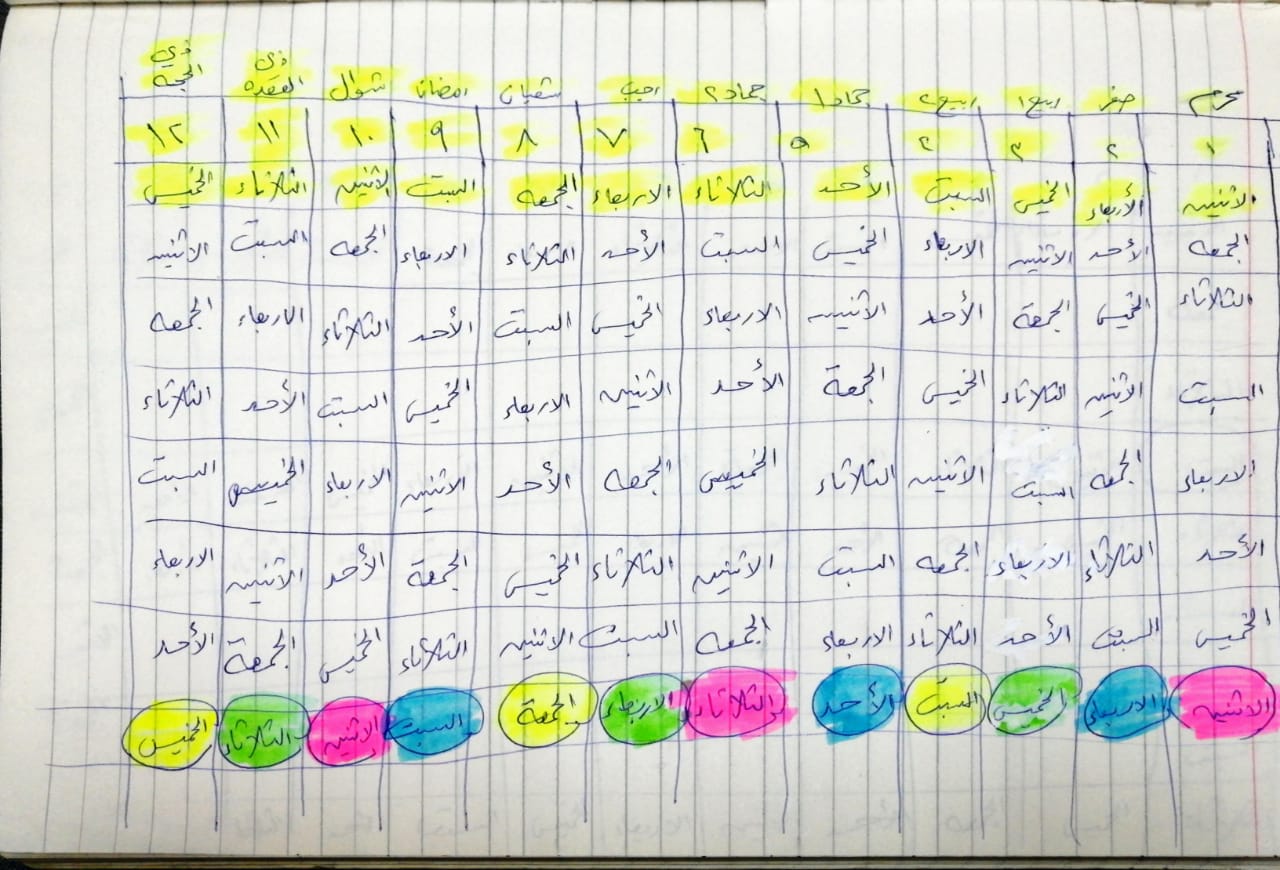 محرم صفر ربيع١ ربيع٢ جماد١ جماد٢ رجب شعبان رمضان شوال ذي القعده ذي الحجه
١ ٢ ٣ ٤ ٥ ٦ ٧ ٨ ٩ ١٠ ١١ ١٢
الاثنين الأربعاء الخميس السبت الأحد الثلاثاء الاربعاء الجمعه السبت الاثنين الثلاثاء الخميس
الجمعه الأحد الاثنين الاربعاء الخميس السبت الأحد الثلاثاء الاربعاء الجمعه السبت الاثنين
الثلاثاء الخميس الجمعة الأحد الاثنين الاربعاء الخميس السبت الأحد الثلاثاء الاربعاء الجمعه
السبت الاثنين الثلاثاء الخميس الجمعة الأحد الاثنين الاربعاء الخميس السبت الأحد الثلاثاء
الاربعاء الجمعه السبت الاثنين الثلاثاء الخميس الجمعه الأحد الاثنين الاربعاء الخميس السبت
الأحد الثلاثاء الاربعاء الجمعه السبت الاثنين الثلاثاء الخميس الجمعة الأحد الاثنين الاربعاء
الخميس السبت الأحد الثلاثاء الاربعاء الجمعه السبت الاثنين الثلاثاء الخميس الجمعة الأحد
الاثنين الاربعاء الخميس السبت الأحد الثلاثاء الاربعاء الجمعة السبت الاثنين الثلاثاء الخميس